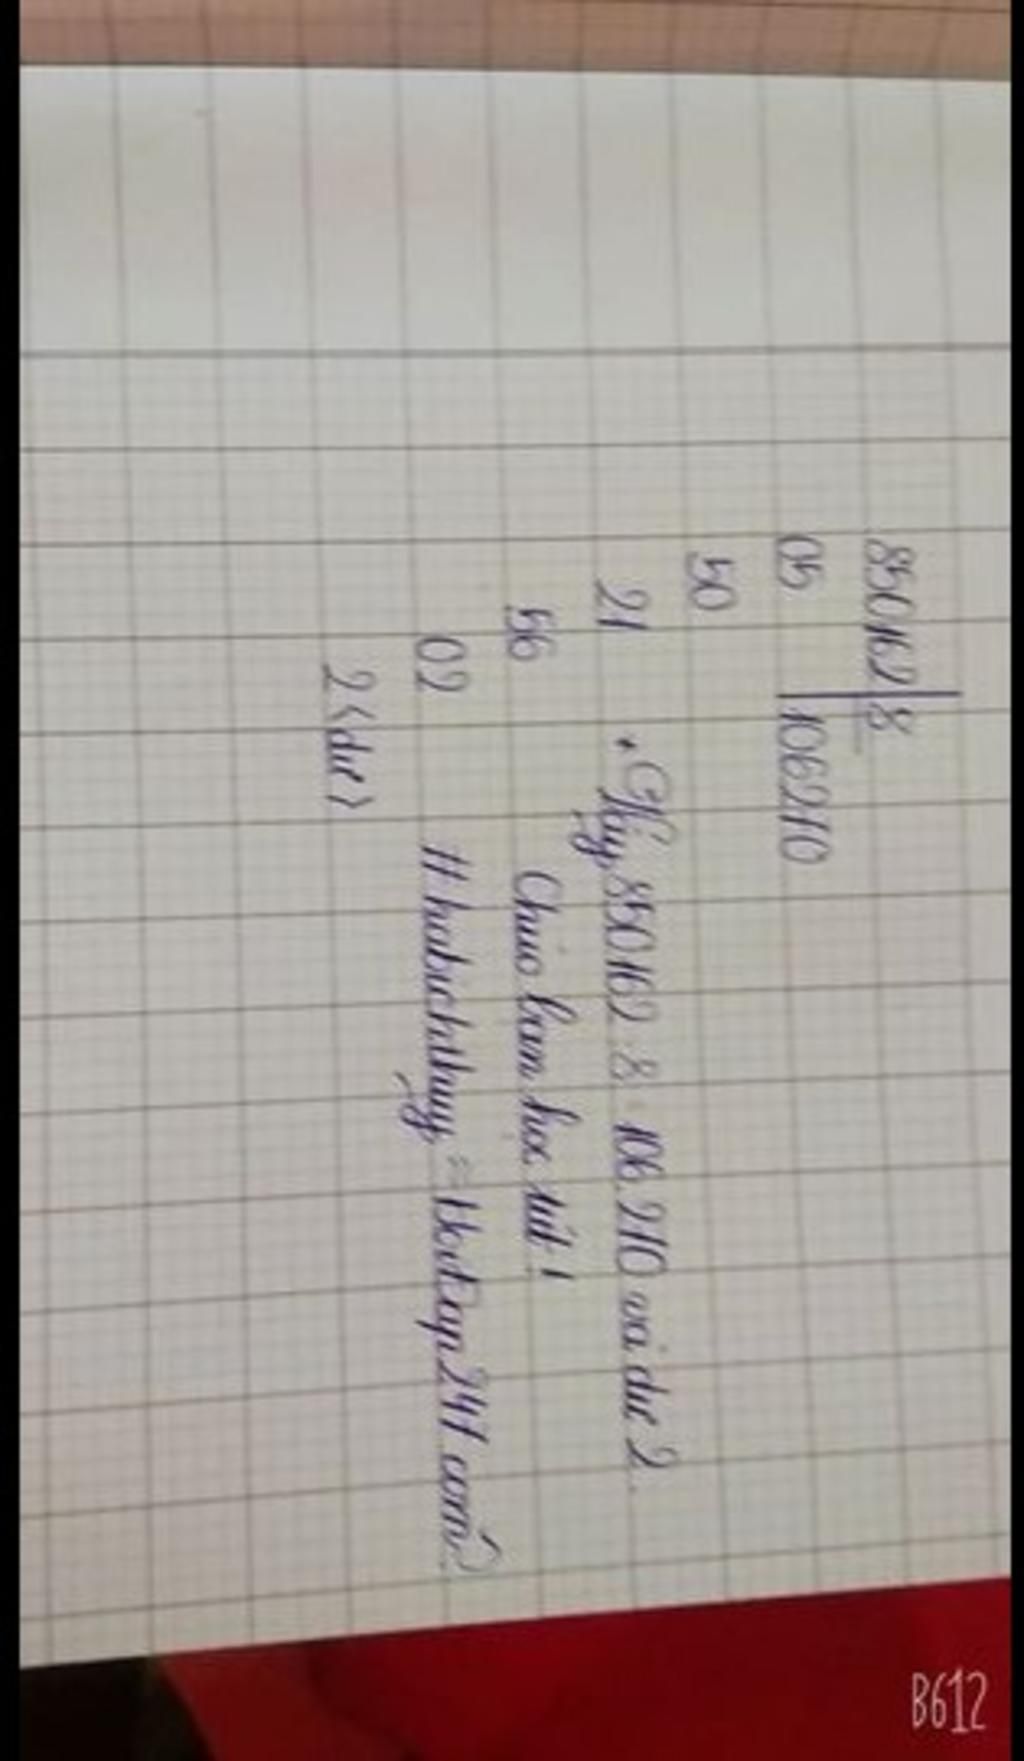 850162 8
05 106210
50
21
56
02
2 <dư>
* Vậy 850162 : 8 = 106 210 và dư 2.
Chúc bạn học tốt!
B612